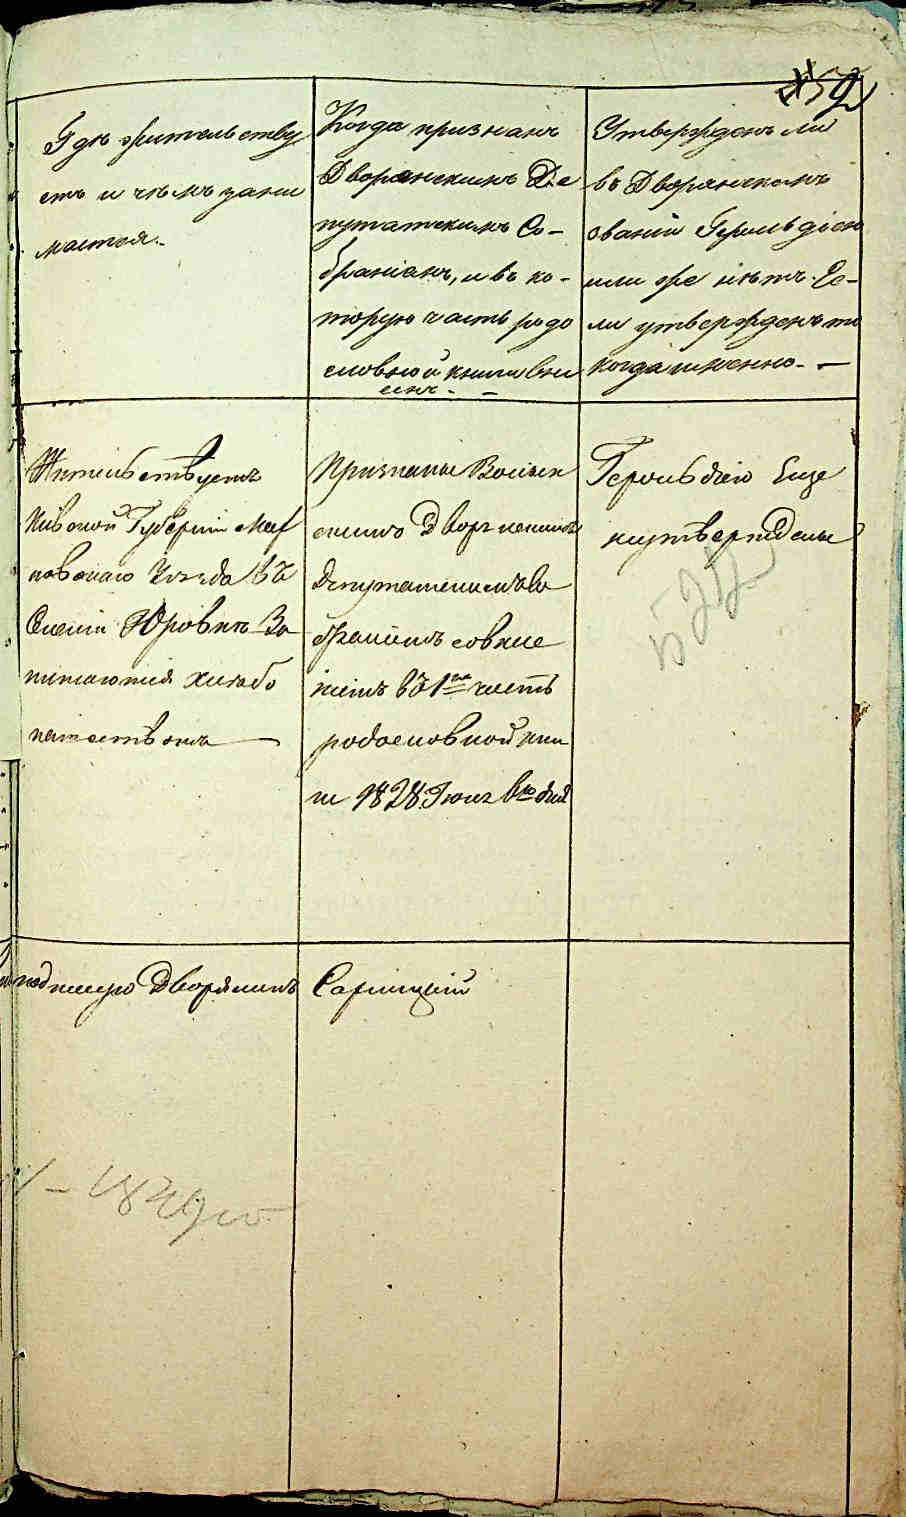 52
Гдѣ жительству
етъ и чѣмъ зани
мается.
Когда признанъ
Дворянскимъ Де
путатскимъ Со-
браніемъ, и въ ко-
торую часть родо
словной книги вне
сенъ. -
Утвержденъ ли
въ Дворянскомъ
званіи Герольдіею
или же нѣтъ. Ес-
ли утвержденъ то
когда именно. -
Жительствуетъ
Кіевской Губерніи
повскаго Уѣзда въ
Селеніи Юровкѣ За
нимаются хлѣбо
пашествомъ
Признаны Волын
скимъ Дворянскимъ
Депутатскимъ Со
браніемъ совнесе
ніемъ въ 1ю часть
родословной кни
ги 1828 Іюня
Герольдіею Еще
неутверждены
подписую Дворянинъ